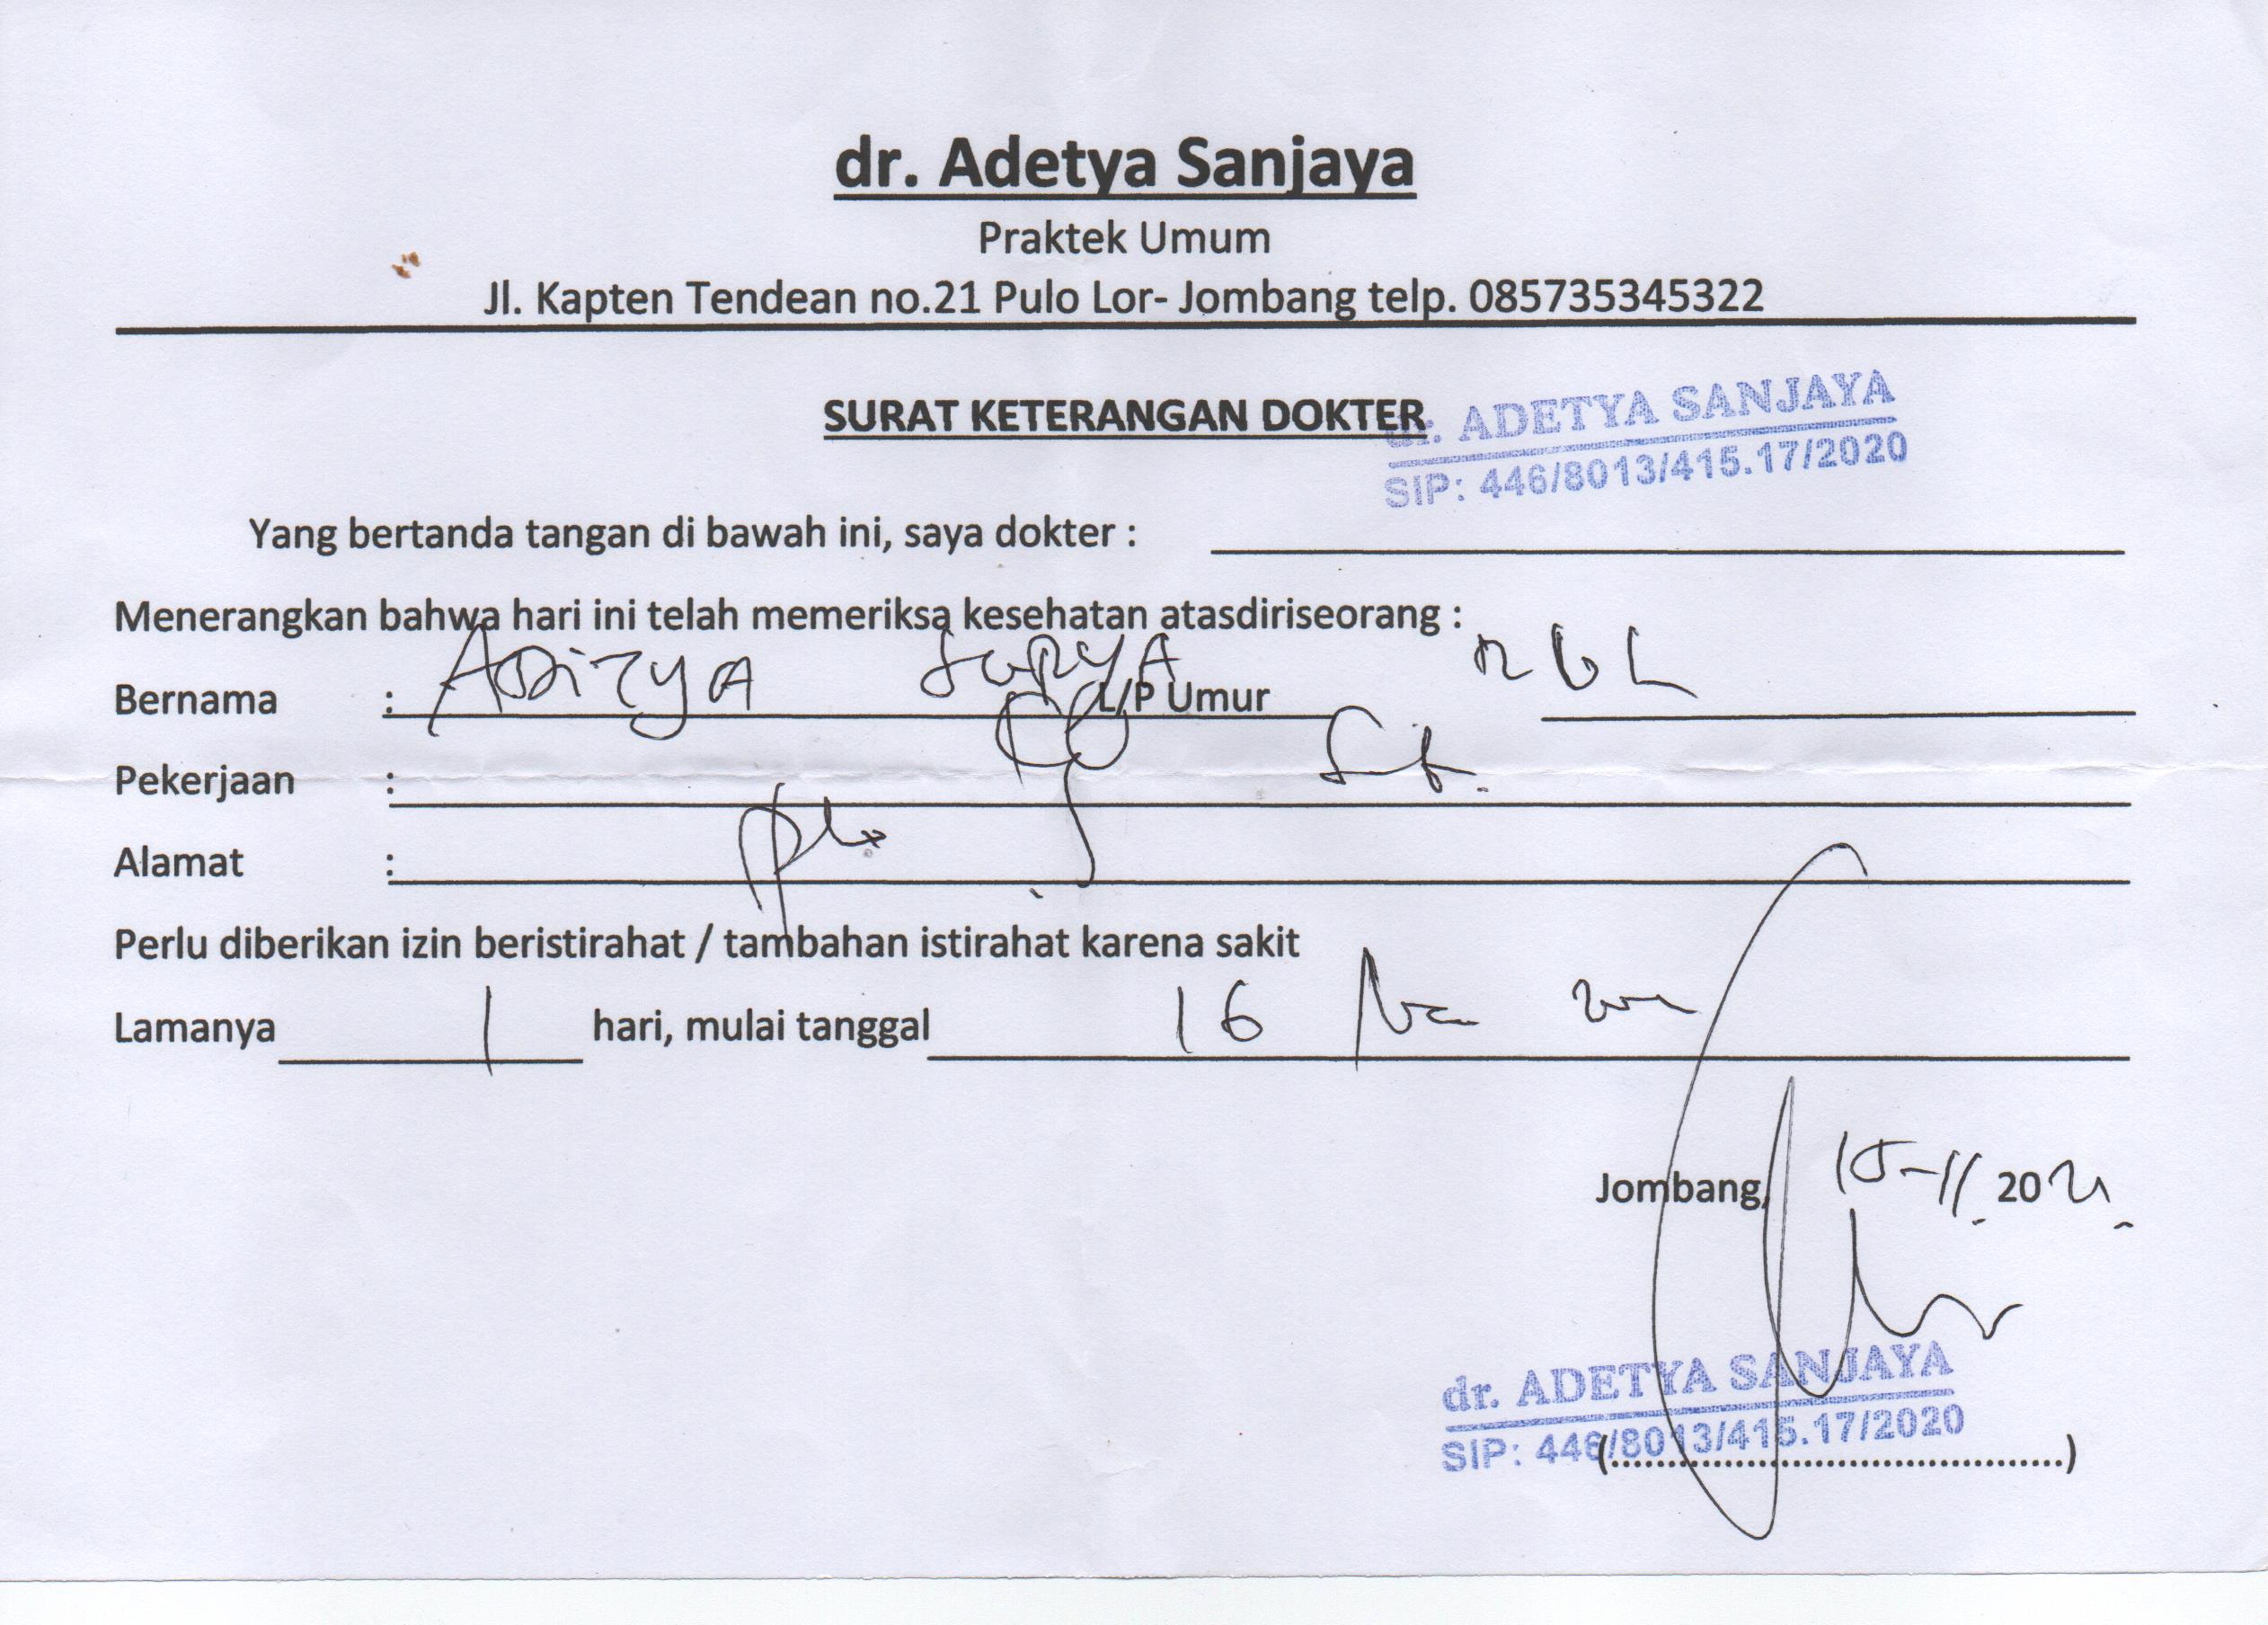 dr. Adetya Sanjaya
Praktek Umum
Jl. Kapten Tendean no.21 Pulo Lor- Jombang telp. 085735345322
SURAT KETERANGAN DOKTER
dr. ADETYA SANJAYA
SIP: 446/8013/415.17/2020
Yang bertanda tangan di bawah ini, saya dokter :
Menerangkan bahwa hari ini telah memeriksa kesehatan atasdiriseorang :
Bernama : ADITYA SURYA L/P Umur
Pekerjaan :
Alamat :
Perlu diberikan izin beristirahat / tambahan istirahat karena sakit
Lamanya 1 hari, mulai tanggal 16
Jombang, 15-11 2021
dr. ADETYA SANJAYA
SIP: 446/8013/415.17/2020
(........................................)